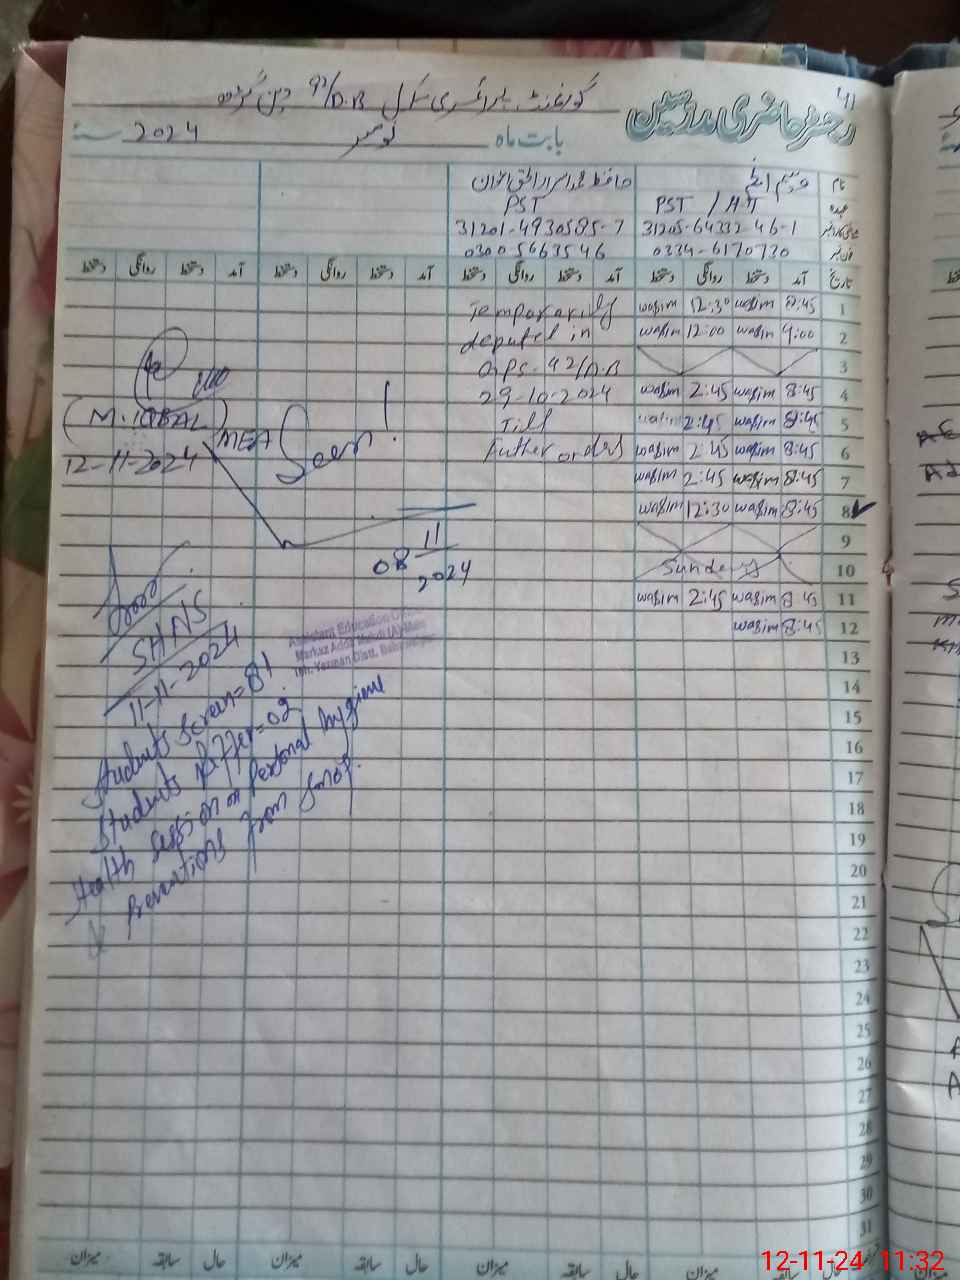 41
رجسٹر حاضری مدرسین
گورنمنٹ پرائمری سکول 92/D.B
بابت ماہ نومبر 2024 سنہ
نام
عہدہ PST / H.T PST
31205-6433246-1 31201-4930585-7
0334-6170730 03005663546
تاریخ آمد دستخط روانگی دستخط آمد دستخط روانگی دستخط آمد دستخط روانگی دستخط آمد دستخط روانگی دستخط
1 8:45 wasim 12:30 wasim
2 9:00 wasim 12:00 wasim
3
4 8:45 wasim 2:45 wasim
5 8:45 wasim 2:45 wasim
6 8:45 wasim 2:45 wasim
7 8:45 wasim 2:45 wasim
8 8:45 wasim 12:30 wasim
9
10 Sunday
11 8:45 wasim 2:45 wasim
12 8:45 wasim
13
14
15
16
17
18
19
20
21
22
23
24
25
26
27
28
29
30
31
Temporarily
deputed in
G.P.S. 92/D.B
29-10-2024
Till
Futher orders
(M. IQBAL)
MEA
12-11-2024
Seen!
08 11
2024
Assistant Education Officer
SHNS
11-11-2024
Students Screen=81
Students Reffer=02
Health session on Personal hygiene
& Prevantions from Smog.
میزان سابقہ حال میزان سابقہ حال میزان سابقہ حال میزان
12-11-24 11:32